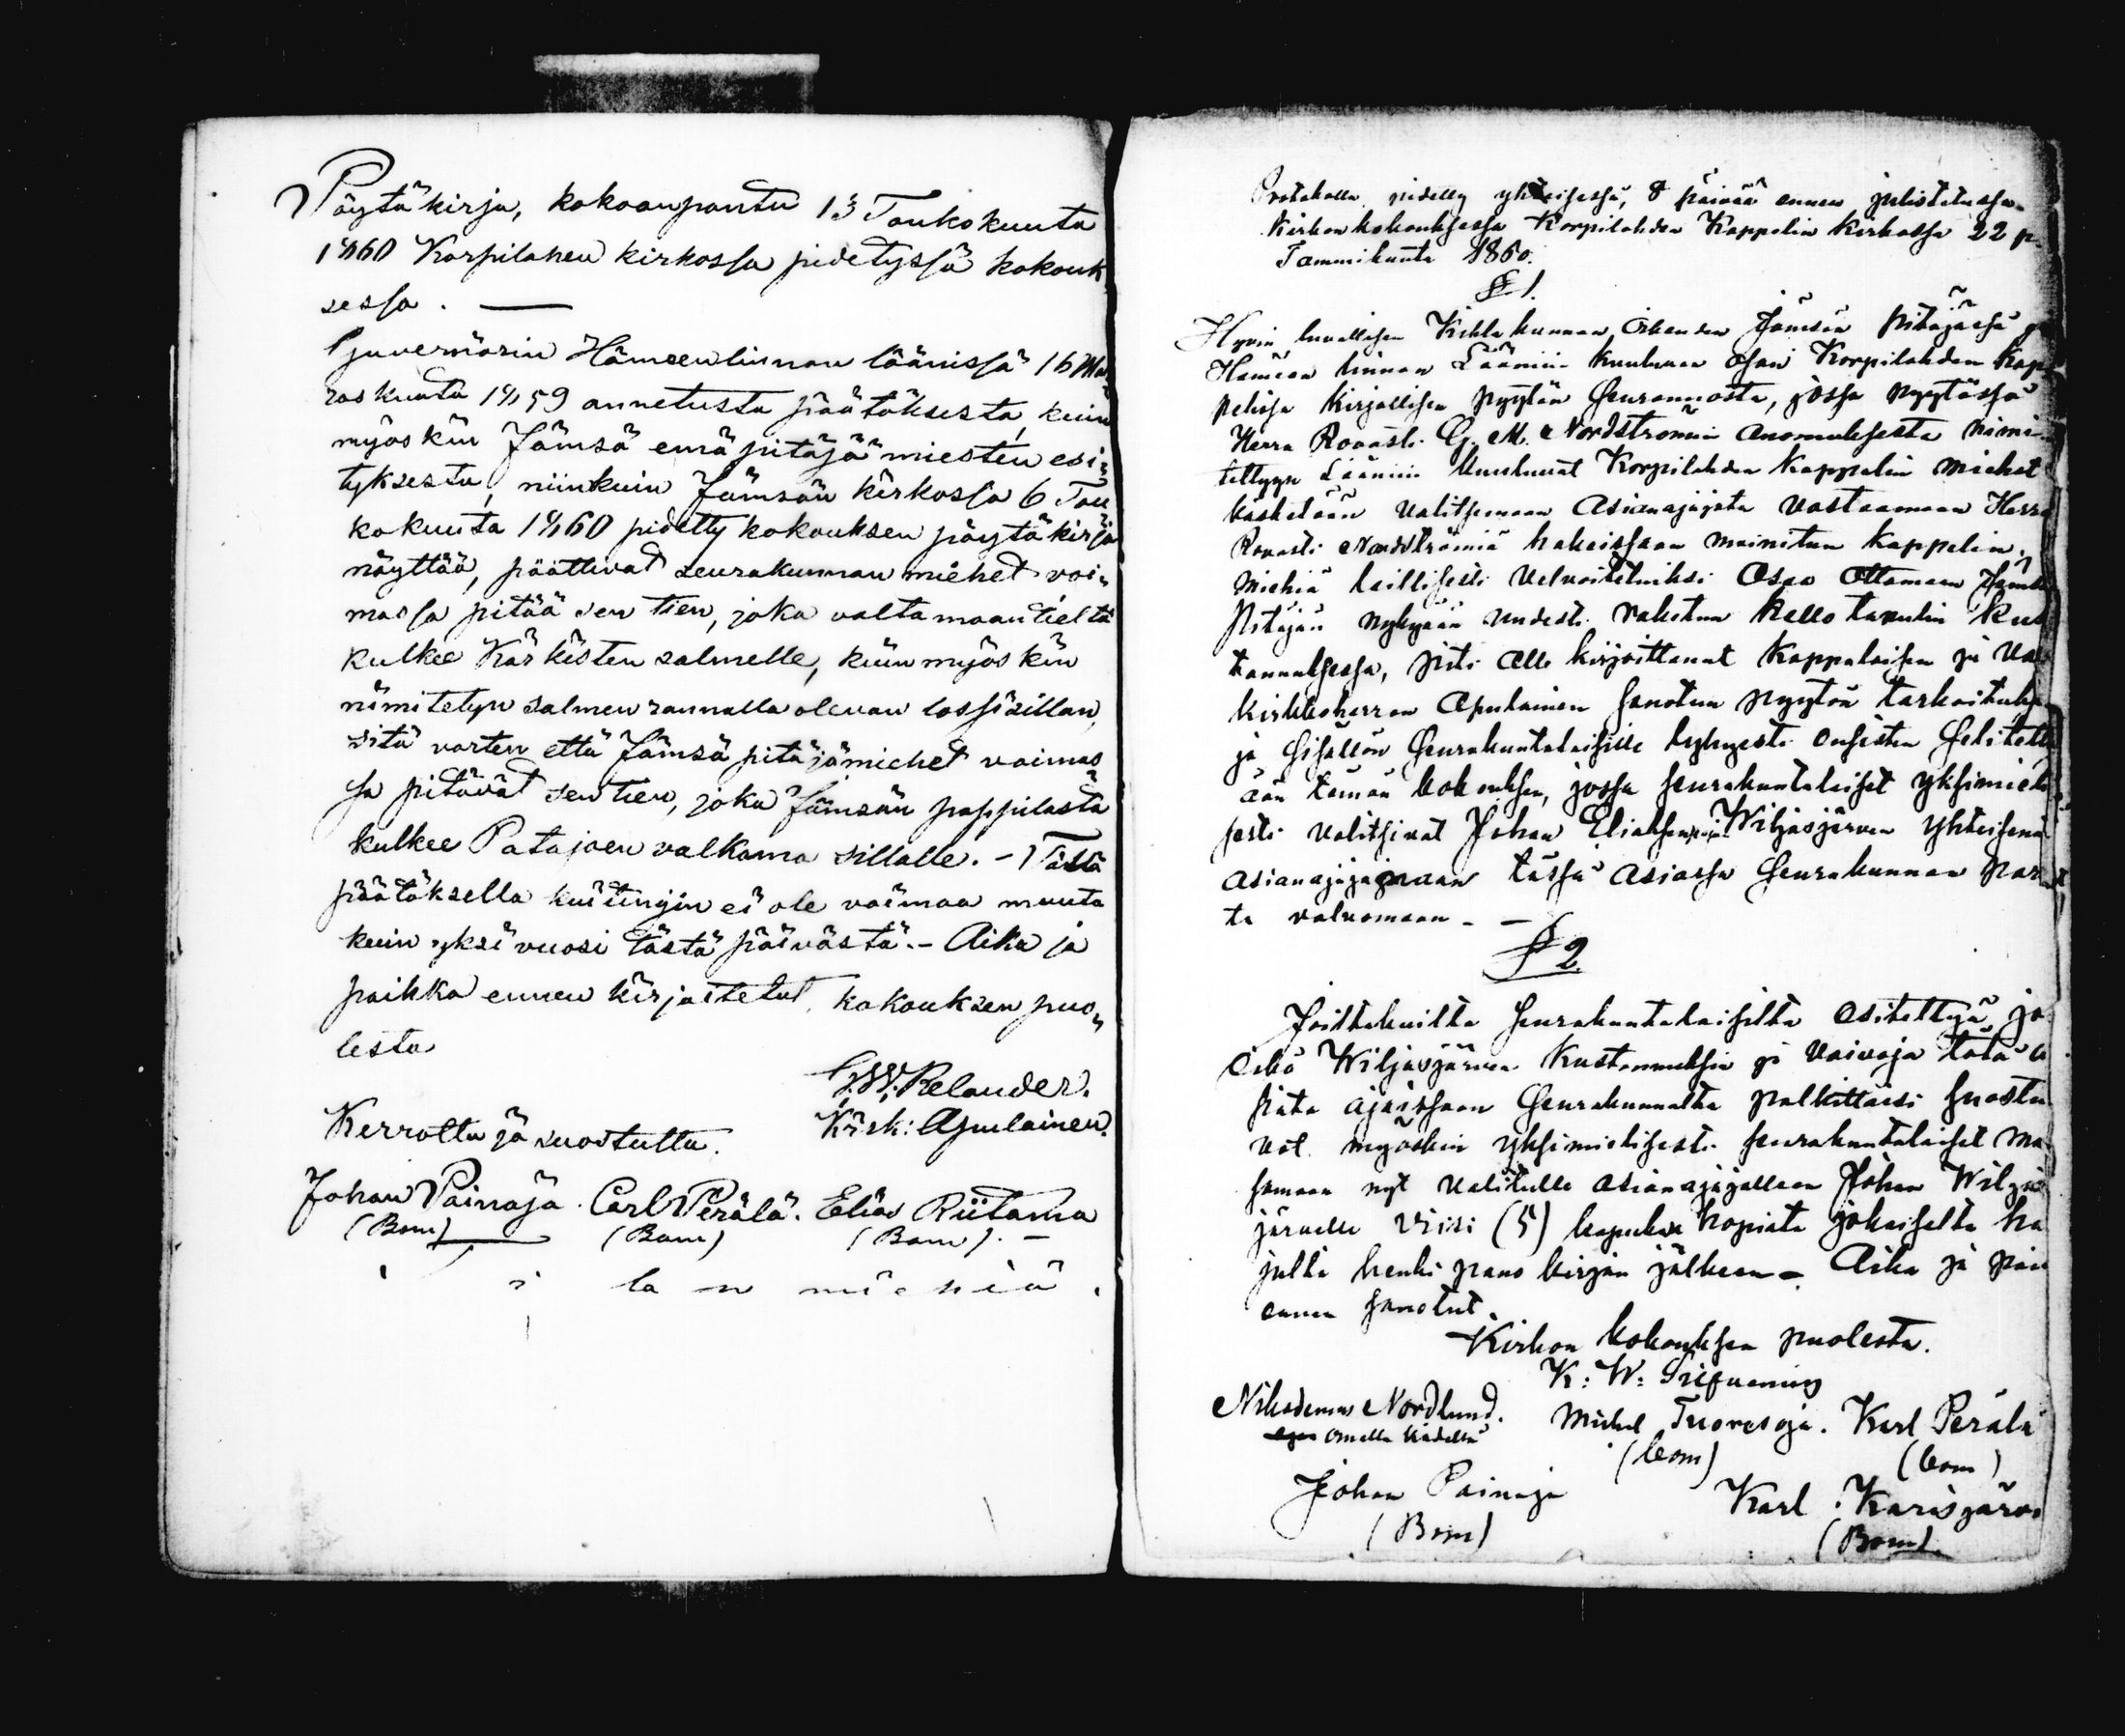 Pöytäkirja, kokoonpantu 13 Toukokuuta
1860 Korpilahen kirkossa pidetyssä kokouk
sessa. —
Guvernörin Hämeenlinnan läänissä 16 Mar
raskuuta 1859 annetusta päätöksestä, kuin
myöskin Jämsä emäpitäjä miesten esi-
tyksestä, niinkuin Jämsän kirkossa 6 Tou
kokuuta 1860 pidetty kokouksen pöytäkirja
näyttää, päättivät seurakunnan miehet voi-
massa pitää sen tien, joka valtamaantieltä
kulkee Kärkisten salmelle, kuin myöskin
nimitetyn salmen rannalla olevan lossisillan,
sitä varten että Jämsä pitäjämiehet voimas
sa pitävät sen tien, joka Jämsän pappilasta
kulkee Patajoen valkama sillalle. – Tällä
päätöksellä kuitingin ei ole voimaa muuta
kuin yksi vuosi tästä päivästä. – Aika ja
paikka ennen kirjoitetut, kokouksen puo-
lesta
G. W. Relander.
Kirk: Apulainen.
Kerrottu ja suostuttu.
Johan Painaja. Carl Perälä. Elias Riitama
(Bom) (Bom) (Bom). –
miehiä.
Protokolla pidetty yhteisessä, 8 päivää ennen julistetussa
Kirkon kokouksessa Korpilahden Kappelin Kirkossa 22 p.
Tammikuuta 1860.
§ 1.
Hyvin luvallisen Kihlakunnan Jämsän Pitäjässä ja
Hämeen linnan Lääniin kuuluvan osan Korpilahden Kap-
pelissa kirjallisen pyytön seurannosta, jossa pyytössä
Herra Rovasti G. M. Nordströmin anomuksesta nimi-
tettyyn Lääniin kuuluvat Korpilahden Kappelin miehet
käsketään valitsemaan Asianajajata vastaamaan Herra
Rovasti Nordströmiä hakeissaan mainitun kappelin
miehiä laillisesti velvoitetuiksi osaa ottamaan Jämsän
Pitäjän nykyään uudesti raketun kello tapulin kus-
tannuksessa, piti alle kirjoittanut Kappalaisen ja Va
kirkkoherran Apulainen sanotun pyytön tarkoituksen
ja sisällön seurakuntalaisille lyhyesti ensisten selitetty
ään tämän kokouksen, jossa seurakuntalaiset yksimieli
sesti valitsivat Johan Eliaksenpoja Wiljasjärven yhteisenä
asianajajanaan tässä asiassa seurakunnan paras
ta valvomaan. –
§ 2.
Joittakuilta seurakuntalaisilta esitettyä jo
eikö Wiljasjärven kustannuksia ja vaivoja tätä a
siata ajaissaan seurakunnalta palkittaisi suostu
vat myöskin yksimielisesti seurakuntalaiset ma
samaan nyt valitulle asianajajallaan Johan Wiljas
järvelle viisi (5) kopekaa hopiata jokaiselta ha
julta henki pano kirjan jälkeen. – Aika ja pai
ennen sanotut.
Kirkon kokouksen puolesta.
K: W:
Nikodemus Nordlund. Michel Tuoresoja. Karl Perälä
omalla kädellä (bom) (bom)
Johan Painaja Karl Karisjärvi
(Bom) (Bom).